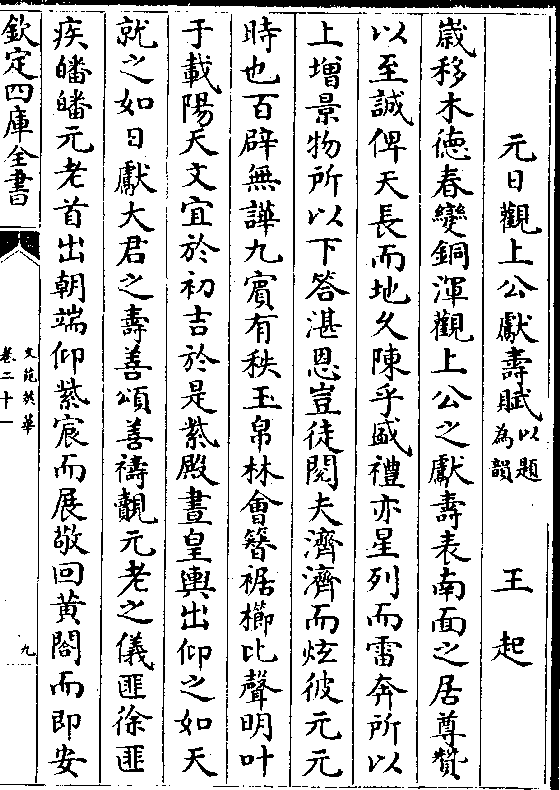 元日觀上公獻壽賦以題為韻 王起
歲移木德春變銅渾觀上公之獻壽表南面之居尊贊
以至誠俾天長而地久陳乎盛禮亦星列而雷奔所以
上增景物所以下答湛恩豈徒閱夫濟濟而炫彼元元
時也百辟無譁九賓有秩玉帛林會簪裾櫛比聲明叶
于載陽天文宜於初吉於是紫殿晝皇輿出仰之如天
就之如日獻大君之壽善頌善禱覿元老之儀匪徐匪
疾皤皤元老首出朝端仰紫宸而展敬回黃閤而即安
欽定四庫全書
文苑英華
卷二十一
九